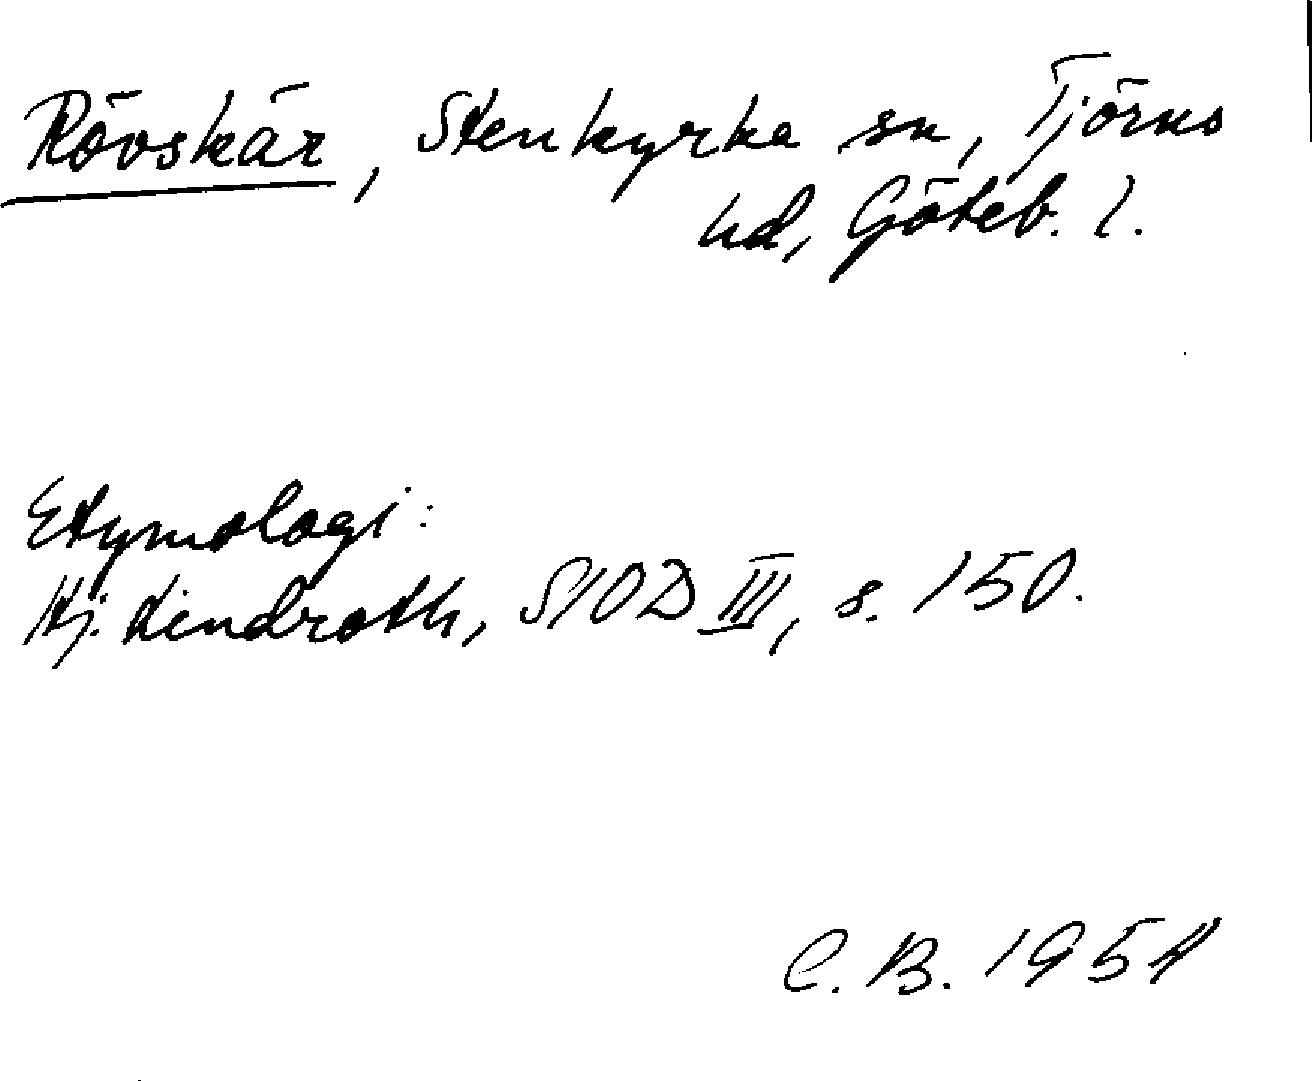 Rövskär, Stenkyrka sn, Tjörns
hd, Göteb. l.
Etymologi:
Hj. Lindroth, SIOD III, s. 150.
C. B. 1954